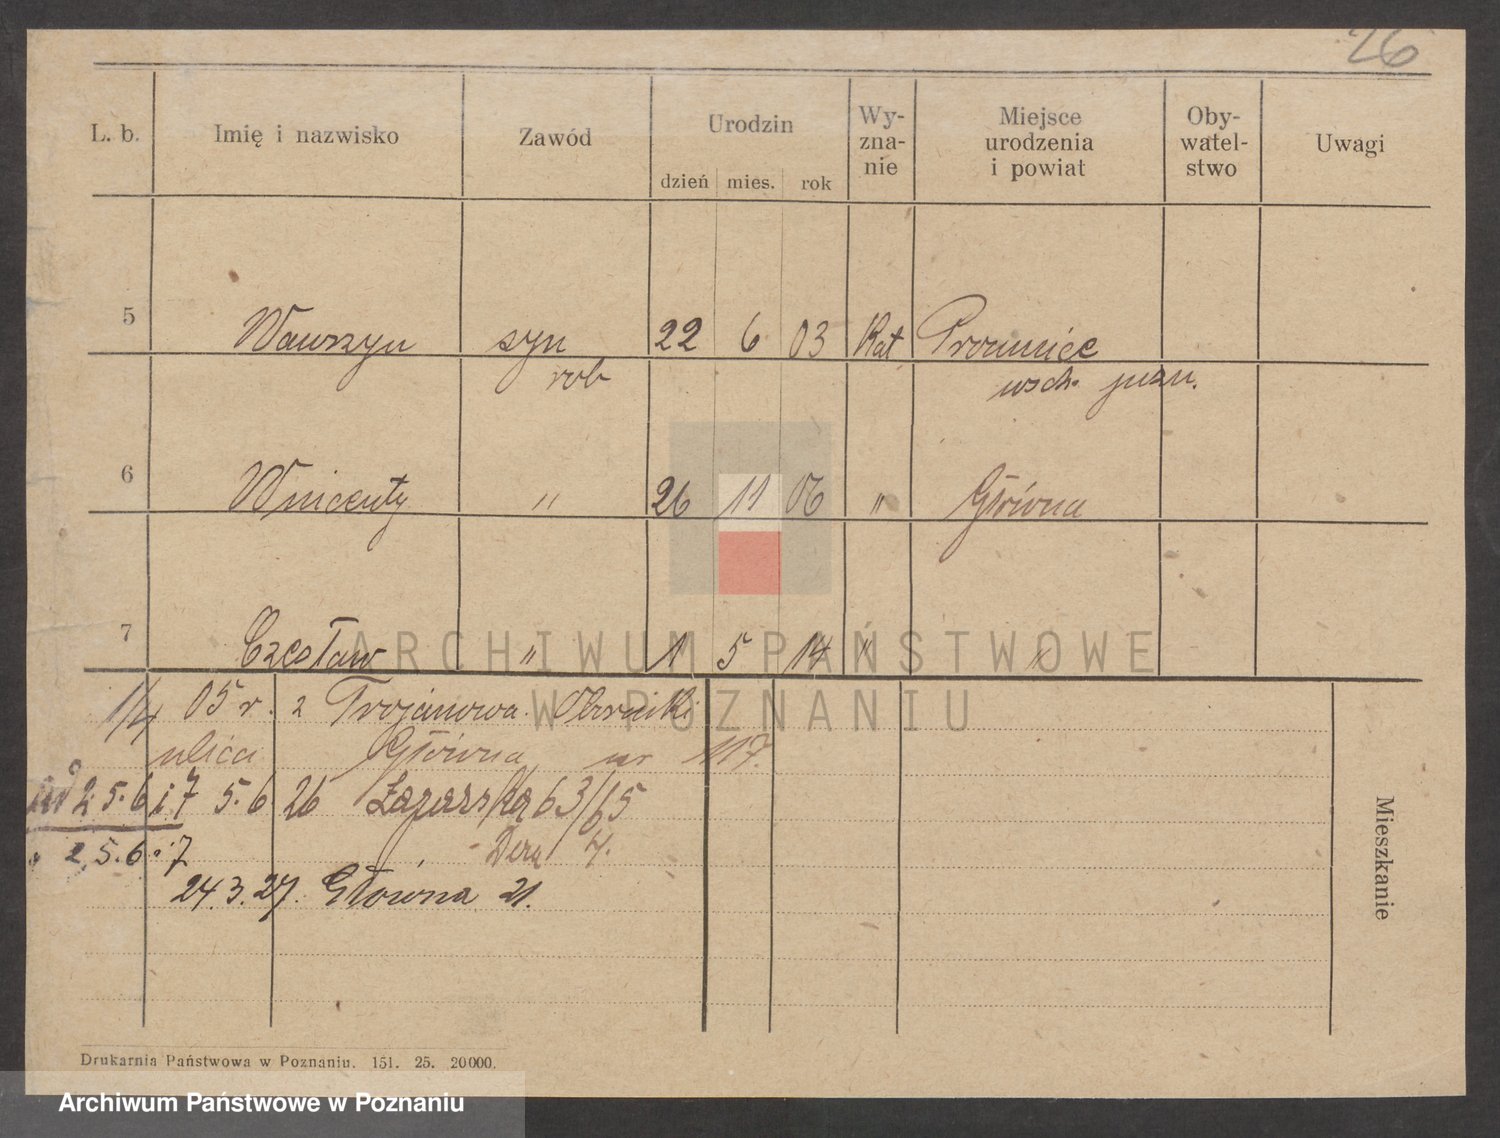 26
L. b. Imię i nazwisko Zawód Urodzin Wy-zna-nie Miejsce urodzenia i powiat Oby-watel-stwo Uwagi
dzień mies. rok
5 Wawrzyn syn 22 6 03 Kat
rob wsch. pozn.
6 Wincenty " 26 11 06 " Główna
7 Czesław " 1 5 14 " "
ARCHIWUM PAŃSTWOWE
W POZNANIU
1/4 05 r. z Trojanowa Oborniki
ulica Główna nr 117.
2. 5. 6 i 7 5. 6 26 Łazarska 63/65
2, 5. 6. i 7 4.
24. 3. 27. Główna 21.
Mieszkanie
Drukarnia Państwowa w Poznaniu. 151. 25. 20000.
Archiwum Państwowe w Poznaniu